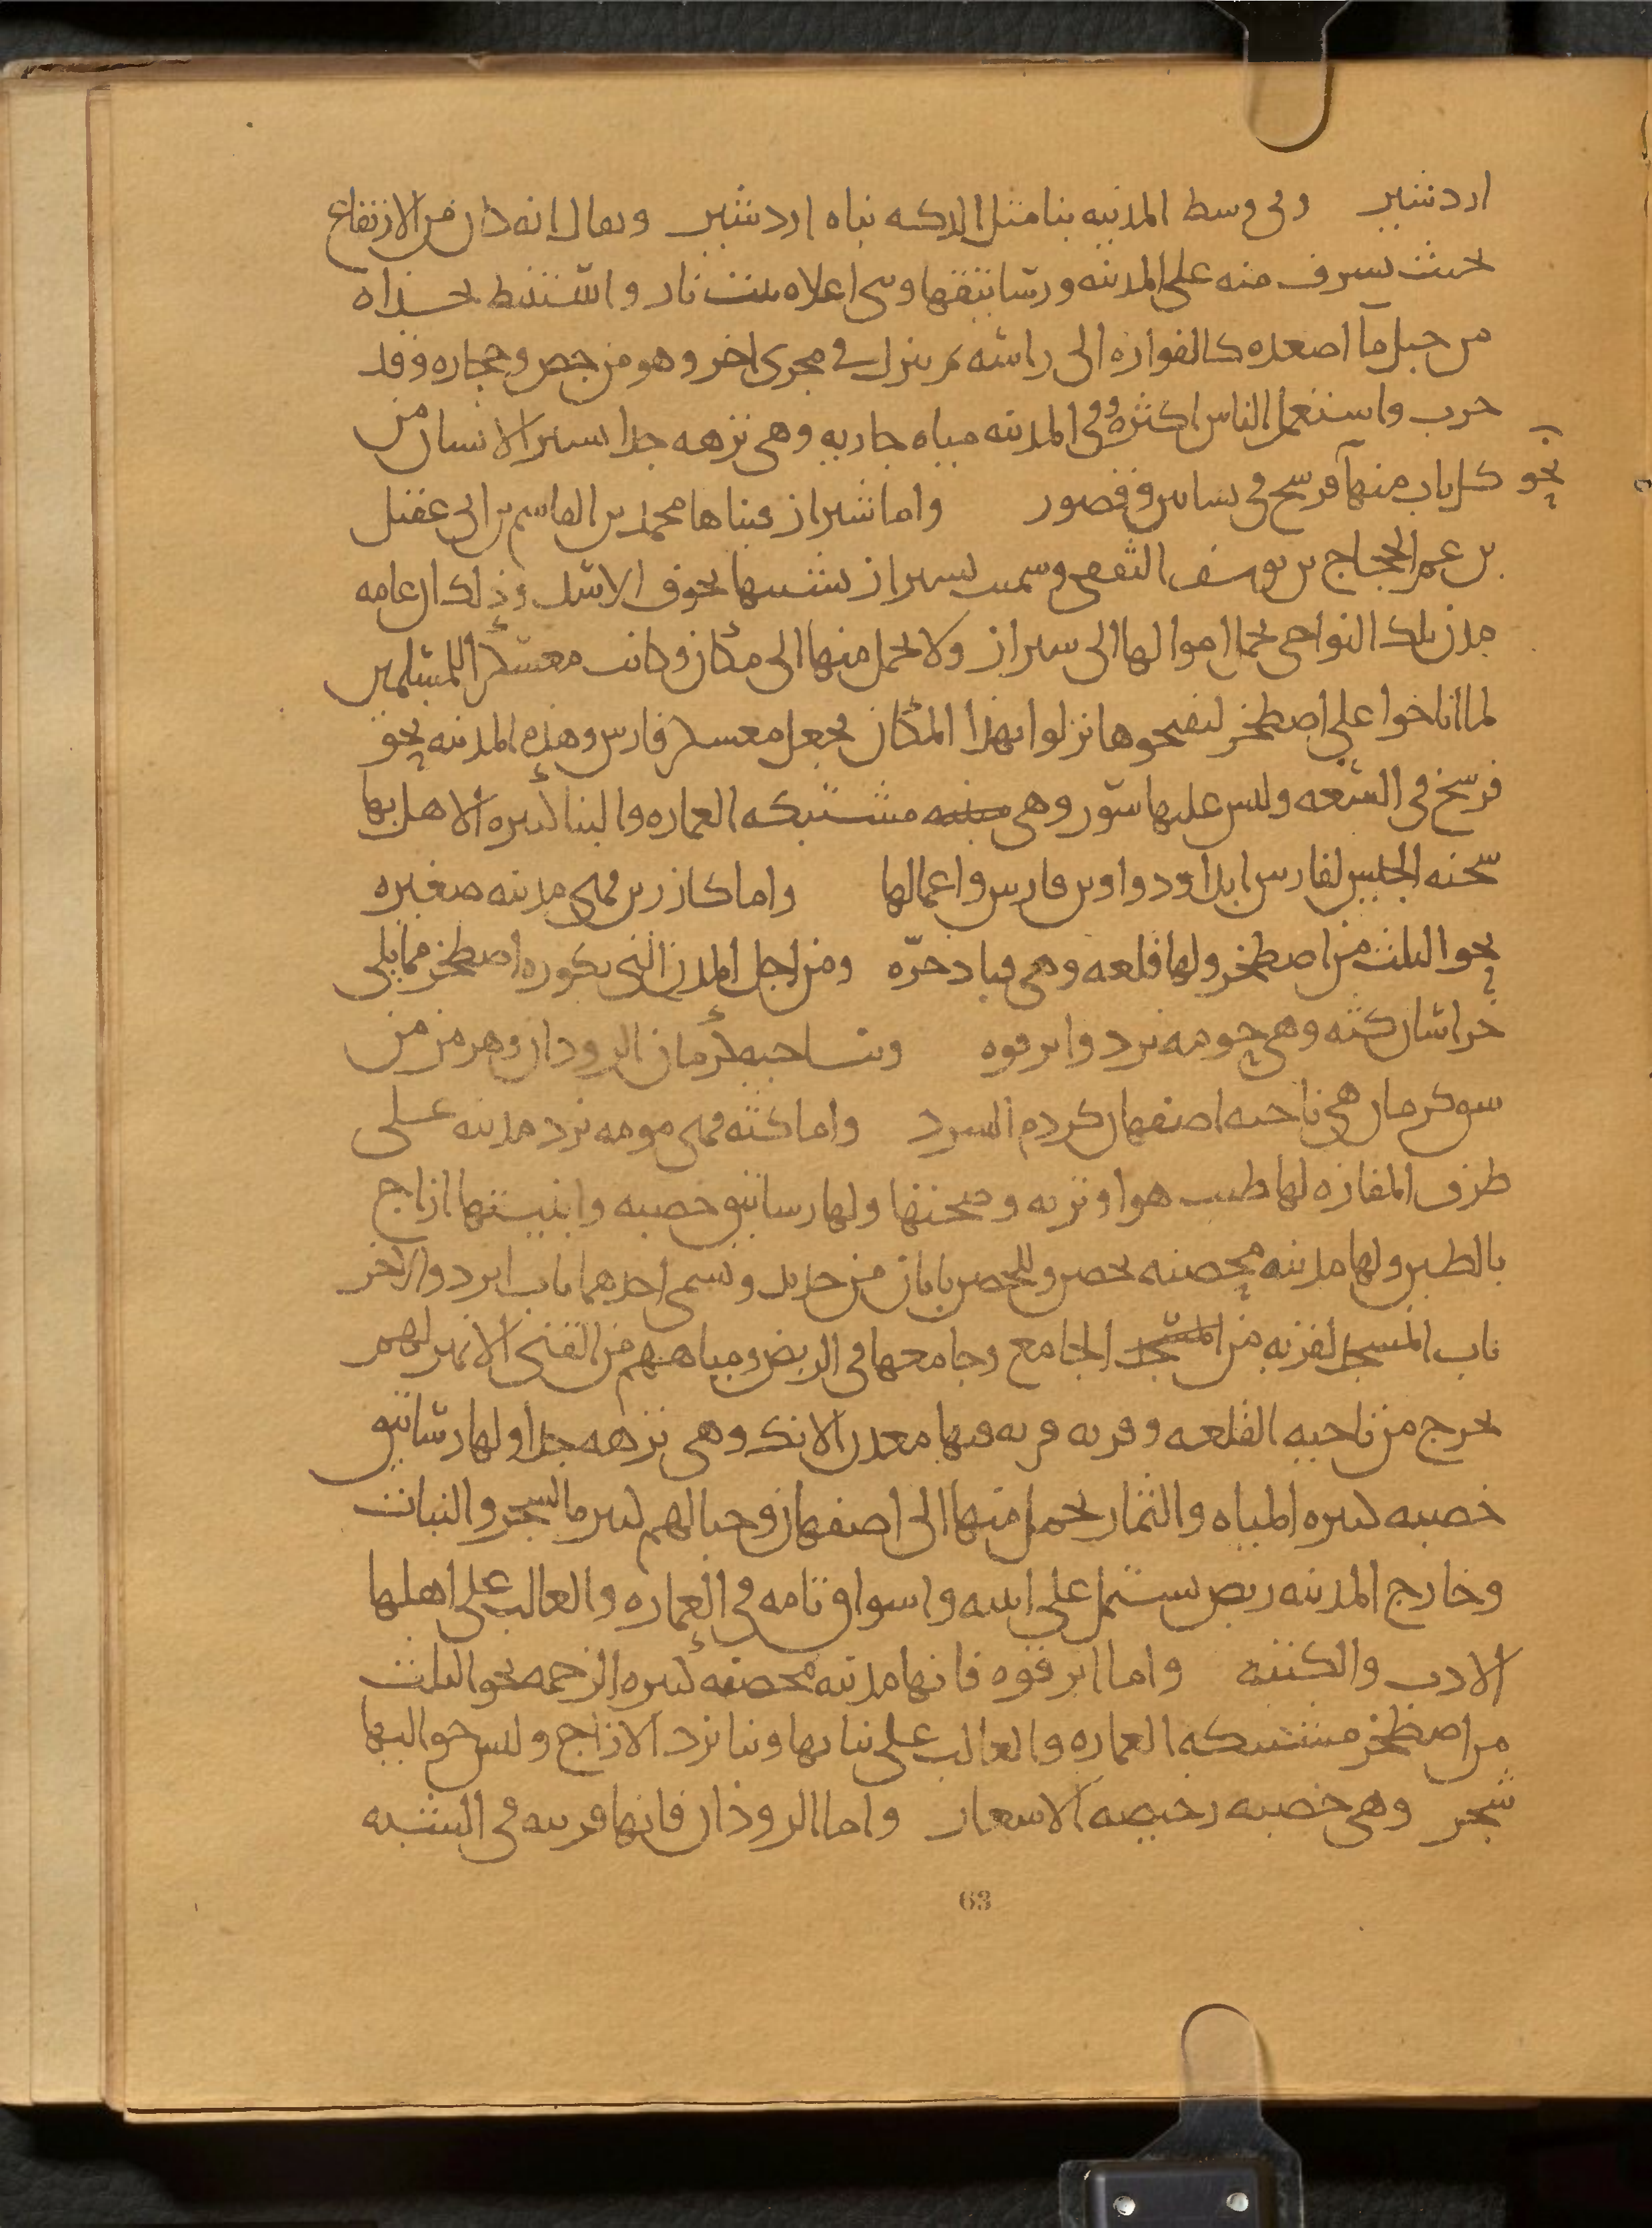 اردشير وفى وسط المدينه بنا مثل الدكه بناه اردشير ويقال انه كان من الارتفاع
بحيث يشرف منه على المدينه ورساتيقها وبنى اعلاه بيت نار واستنبط بحذاه
من جبل ما اصعده كالفواره الى راسه ثم ينزل فى مجرى اخر وهو من جص وحجاره وقد
خرب واستعمل الناس اكثره وفى المدينه مياه جاريه وهى نزهه جدا يسير الانسان من
كل باب منها نحو فرسخ فى بساتين وقصور واما شيراز فبناها محمد بن القاسم بن ابى عقيل
بن عم الحجاج بن يوسف الثقفى وسميت بشيراز تشبيها بجوف الاسد وذلك ان عامه
مدن تلك النواحى تحمل اموالها الى شيراز ولا يحمل منها الى مكان وكانت معسكرا للمسلمين
لما اناخوا على اصطخر ليفتحوها نزلوا بهذا المكان فجعل معسكر فارس وهذه المدينه نحو
فرسخ فى السعه وليس عليها سور وهى مشتبكه العماره والبنا كثيره الاهل بها
شحنه الجيش لفارس ابدا ودواوين فارس واعمالها واما كازرين فهى مدينه صغيره
نحو الثلث من اصطخر ولها قلعه وهى قباد خره ومن اجل المدن التى بكوره اصطخر مما يلى
خراسان كثه وهى حومه يزد وابرقوه وبناحيه كرمان الروذان وهرمز من
سوى كرمان هى ناحيه اصفهان كرد م السرد واما كثه فهى حومه يزد مدينه على
طرف المفازه لها طيب هوا وتربه وصحتها ولها رساتيق خصبه وابنيتها ازاج
بالطين ولها مدينه محصنه بحصن وللحصن بابان من حديد ويسمى احدهما باب ايرد والاخر
باب المسجد لقربه من المسجد الجامع وجامعها فى الربض ومياههم من القنى الا نهر لهم
يخرج من ناحيه القلعه وقربه قريه فيها معدن الانك وهى نزهه جدا ولها رساتيق
خصبه كثيره المياه والثمار يحمل منها الى اصفهان وجبالهم كثيره الشجر والنبات
وخارج المدينه ربض يشتمل على ابنيه واسواق تامه فى العماره والغالب على اهلها
الادب والكتبه واما ابرقوه فانها مدينه محصنه كثيره الزحمه نحو الثلث
من اصطخر مشتبكه العماره والغالب على بنايها وبنا يزد الازاج وليس حواليها
شجر وهى خصبه رخيصه الاسعار واما الروذان فانها قريبه فى الشبه
63